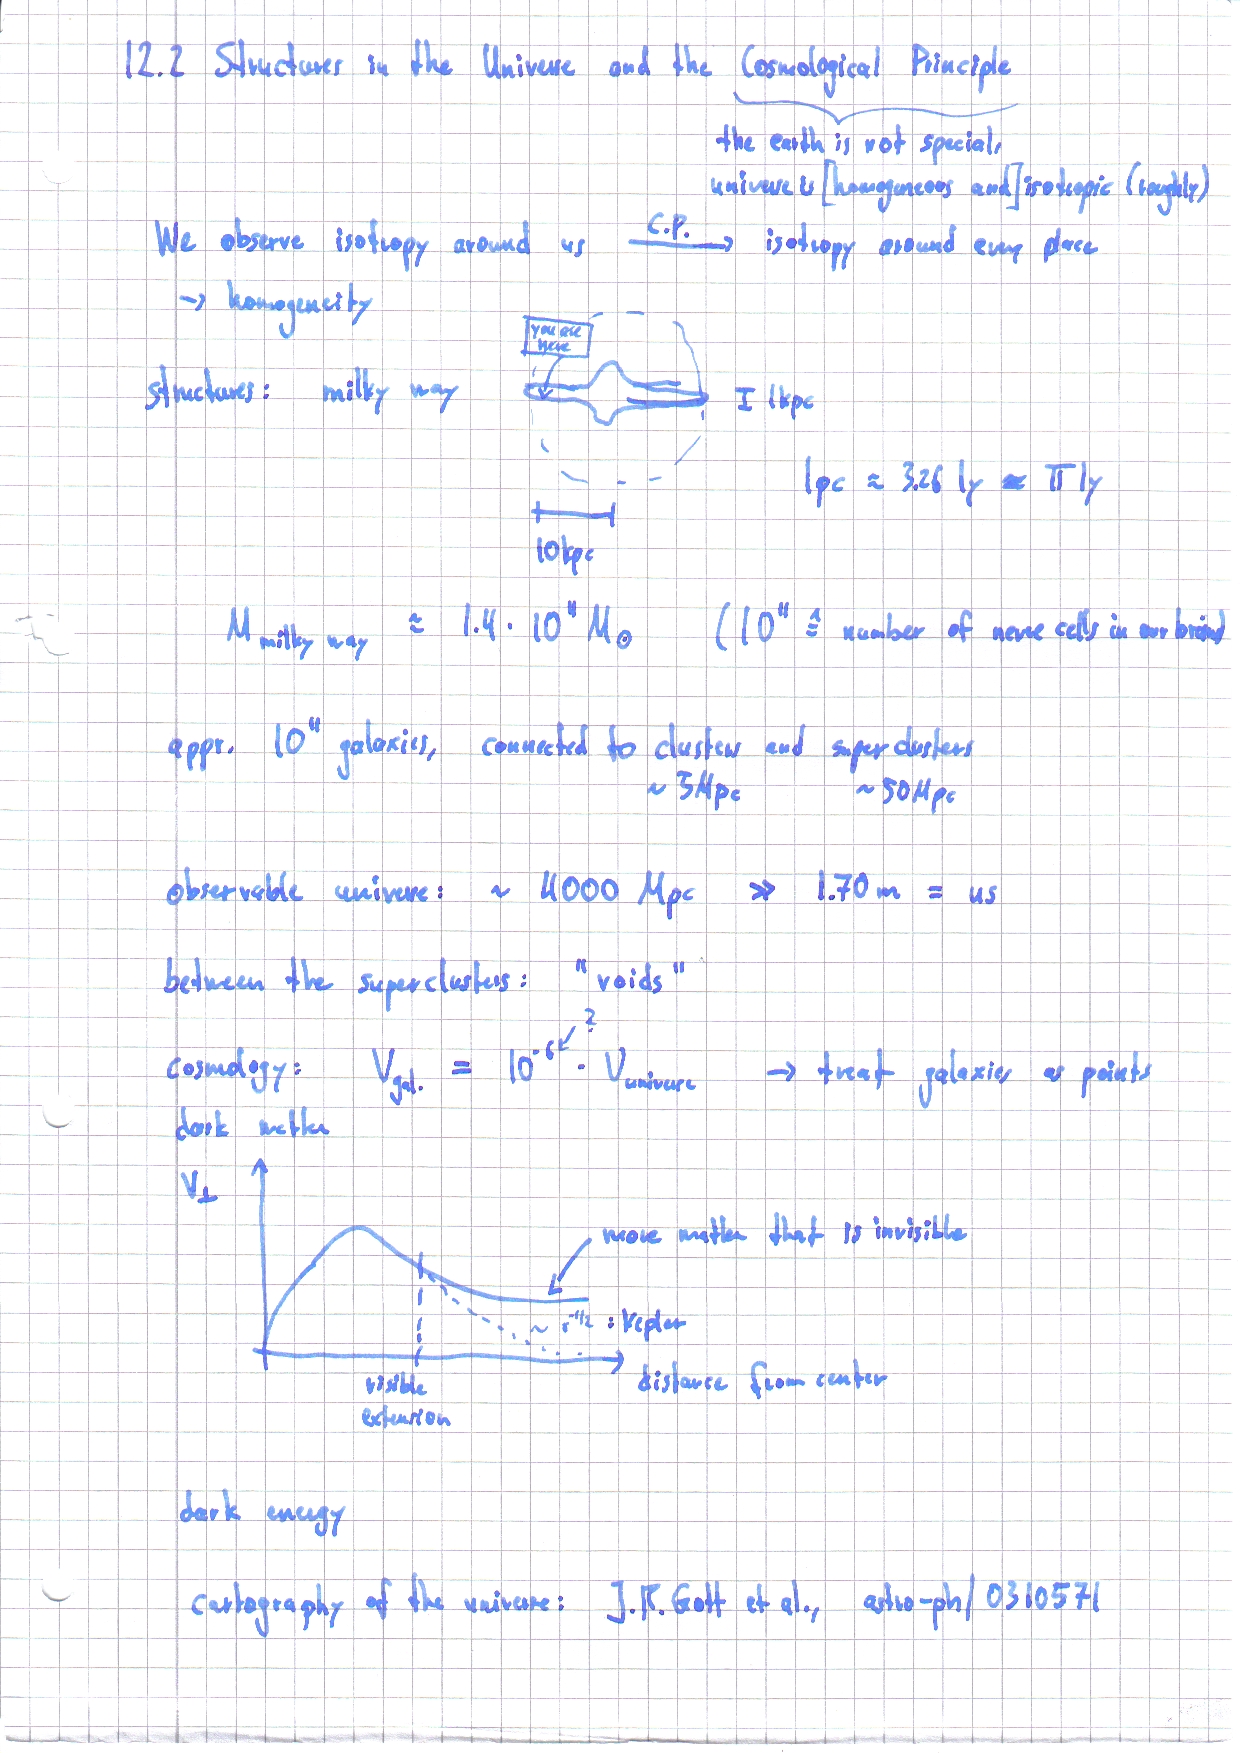 12.2 Structures in the Universe and the Cosmological Principle
the earth is not special,
universe is [homogeneous and] isotropic (roughly)
We observe isotropy around us C.P. → isotropy around every place
→ homogeneity
you are
here
structures: milky way
I 1kpc
1pc ≈ 3.26 ly ≈ π ly
10kpc
M milky way ≈ 1.4 · 10¹¹ M⊙ (10¹¹ ≙ number of nerve cells in our brain)
appr. 10¹¹ galaxies, connected to clusters and superclusters
~ 5Mpc ~ 50Mpc
observable universe: ~ 4000 Mpc ≫ 1.70 m = us
between the superclusters: "voids"
?
cosmology: V gal. = 10⁻⁶ · V universe → treat galaxies as points
dark matter
V⊥
more matter that is invisible
~ r⁻¹/² : Kepler
distance from center
visible
extension
dark energy
cartography of the universe: J.R. Gott et al., astro-ph/0310571